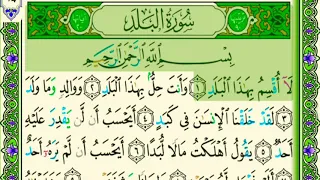 سُورَةُ الْبَلَدِ
بِسْمِ اللَّهِ الرَّحْمَٰنِ الرَّحِيمِ
لَا أُقْسِمُ بِهَٰذَا الْبَلَدِ ١ وَأَنتَ حِلٌّ بِهَٰذَا الْبَلَدِ ٢ وَوَالِدٍ وَمَا وَلَدَ
٣ لَقَدْ خَلَقْنَا الْإِنسَٰنَ فِي كَبَدٍ ٤ أَيَحْسَبُ أَن لَّن يَقْدِرَ عَلَيْهِ
أَحَدٌ ٥ يَقُولُ أَهْلَكْتُ مَالًا لُّبَدًا ٦ أَيَحْسَبُ أَن لَّمْ يَرَهُۥ أَحَدٌ